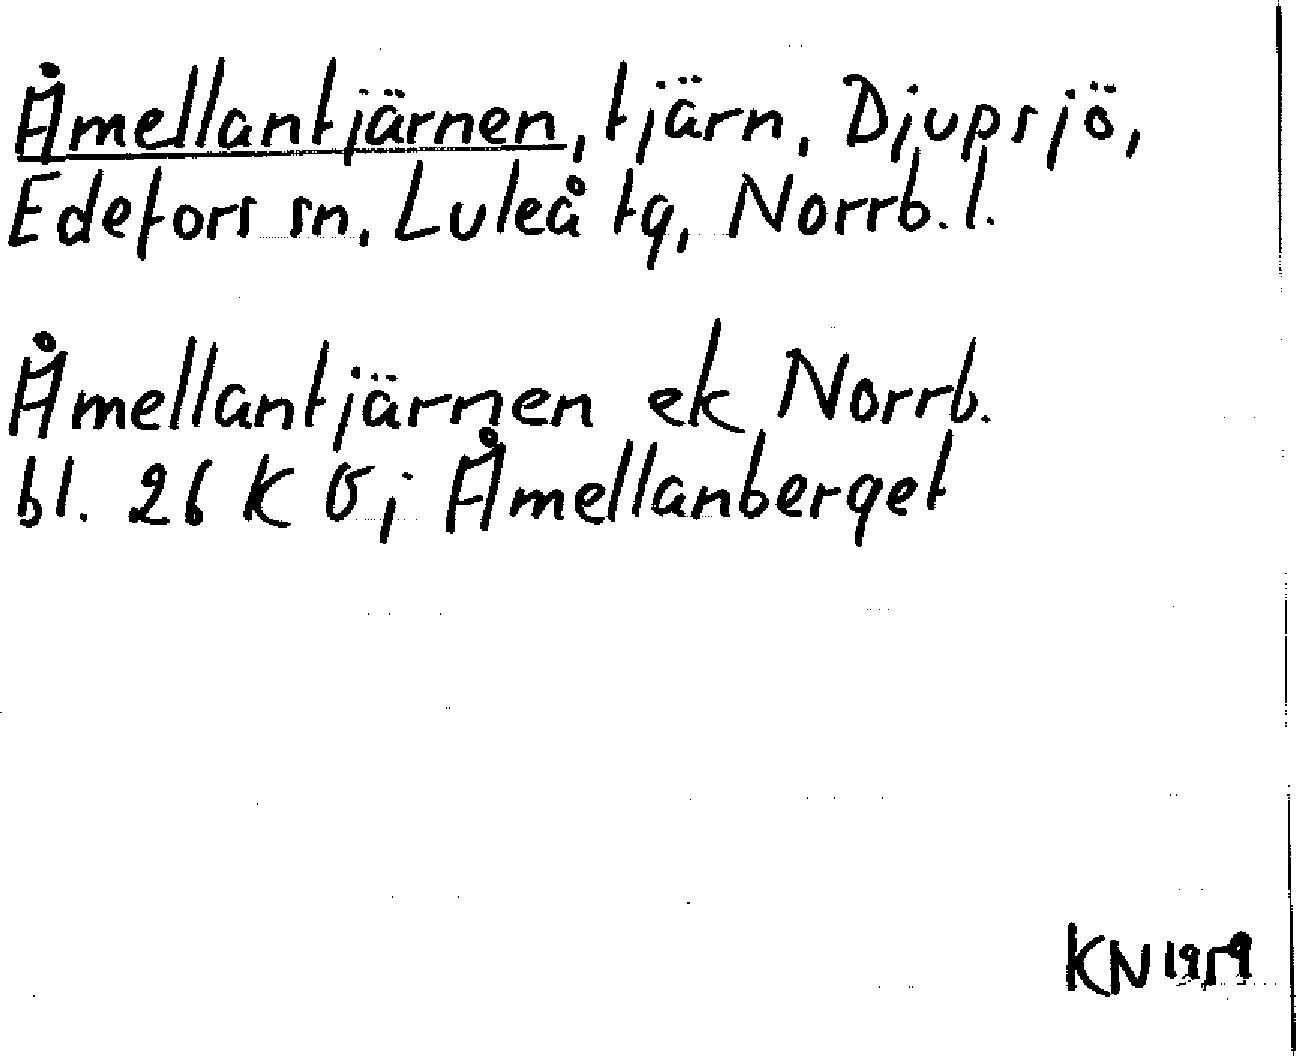 Åmellantjärnen, tjärn, Djupsjö,
Edefors sn, Luleå tg, Norrb. l.
Åmellantjärnen ek Norrb.
bl. 26 K Ö; Åmellanberget
KN 1959